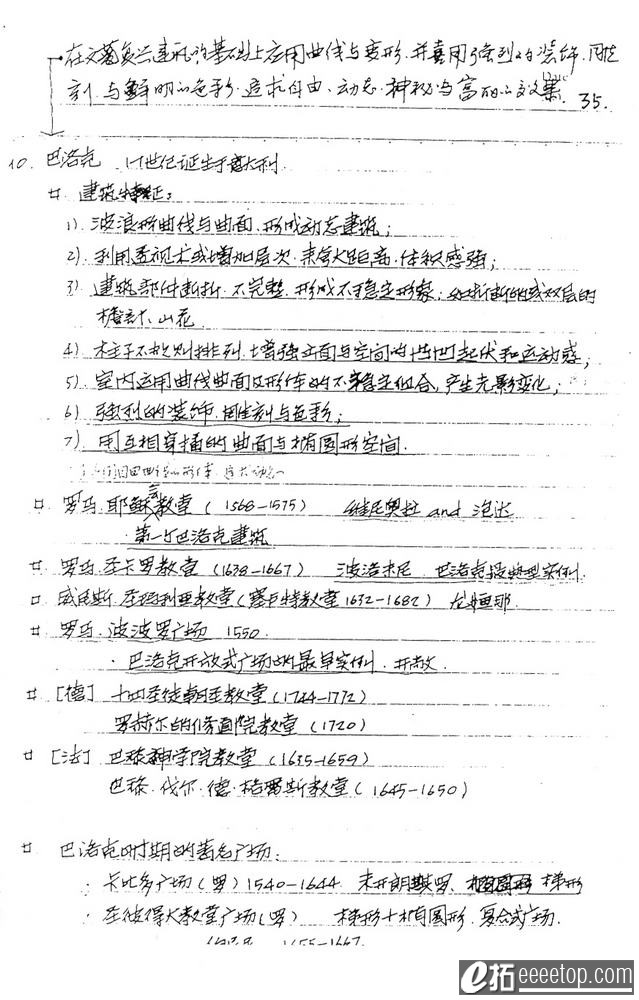 在文艺复兴建筑的基础上应用曲线与变形.并喜用强烈的装饰.用雕
刻与鲜明的色彩.追求自由、动态.神秘与富丽的效果. 35.
10. 巴洛克 17世纪诞生于意大利
# 建筑特征:
1) 波浪形曲线与曲面.形成动态建筑;
2) 利用透视术或增加层次.来夸大距离.体积感强;
3) 建筑部件断折.不完整.形成不稳定形象:如折断的或双层的
檐部、山花
4) 柱子不规则排列.增强立面与空间的凹凸起伏和运动感;
5) 室内运用曲线曲面及形体的不稳定组合,产生光影变化;
6) 强烈的装饰.用雕刻与色彩;
7) 用互相穿插的曲面与椭圆形空间.
# 罗马.耶稣会教堂(1568-1575) 维尼奥拉 and 泡达
·第一个巴洛克建筑
# 罗马.圣卡罗教堂(1638-1667) 波洛米尼.巴洛克最典型实例.
# 威尼斯.圣玛利亚教堂(1632-1682) 龙恒那
# 罗马.波波罗广场 1550.
·巴洛克开放式广场的最早实例.开敞.
# [德] 十四圣徒朝圣教堂(1744-1772)
罗赫尔的修道院教堂(1720)
# [法] 巴黎神学院教堂(1635-1659)
巴黎.伐尔.德.格雷斯教堂(1645-1650)
# 巴洛克时期的著名广场:
·卡比多广场(罗) 1540-1644. 米开朗基罗、梯形
·圣彼得大教堂广场(罗) 梯形+椭圆形.复合式广场.
1655-1667.
e拓eeeetop.com